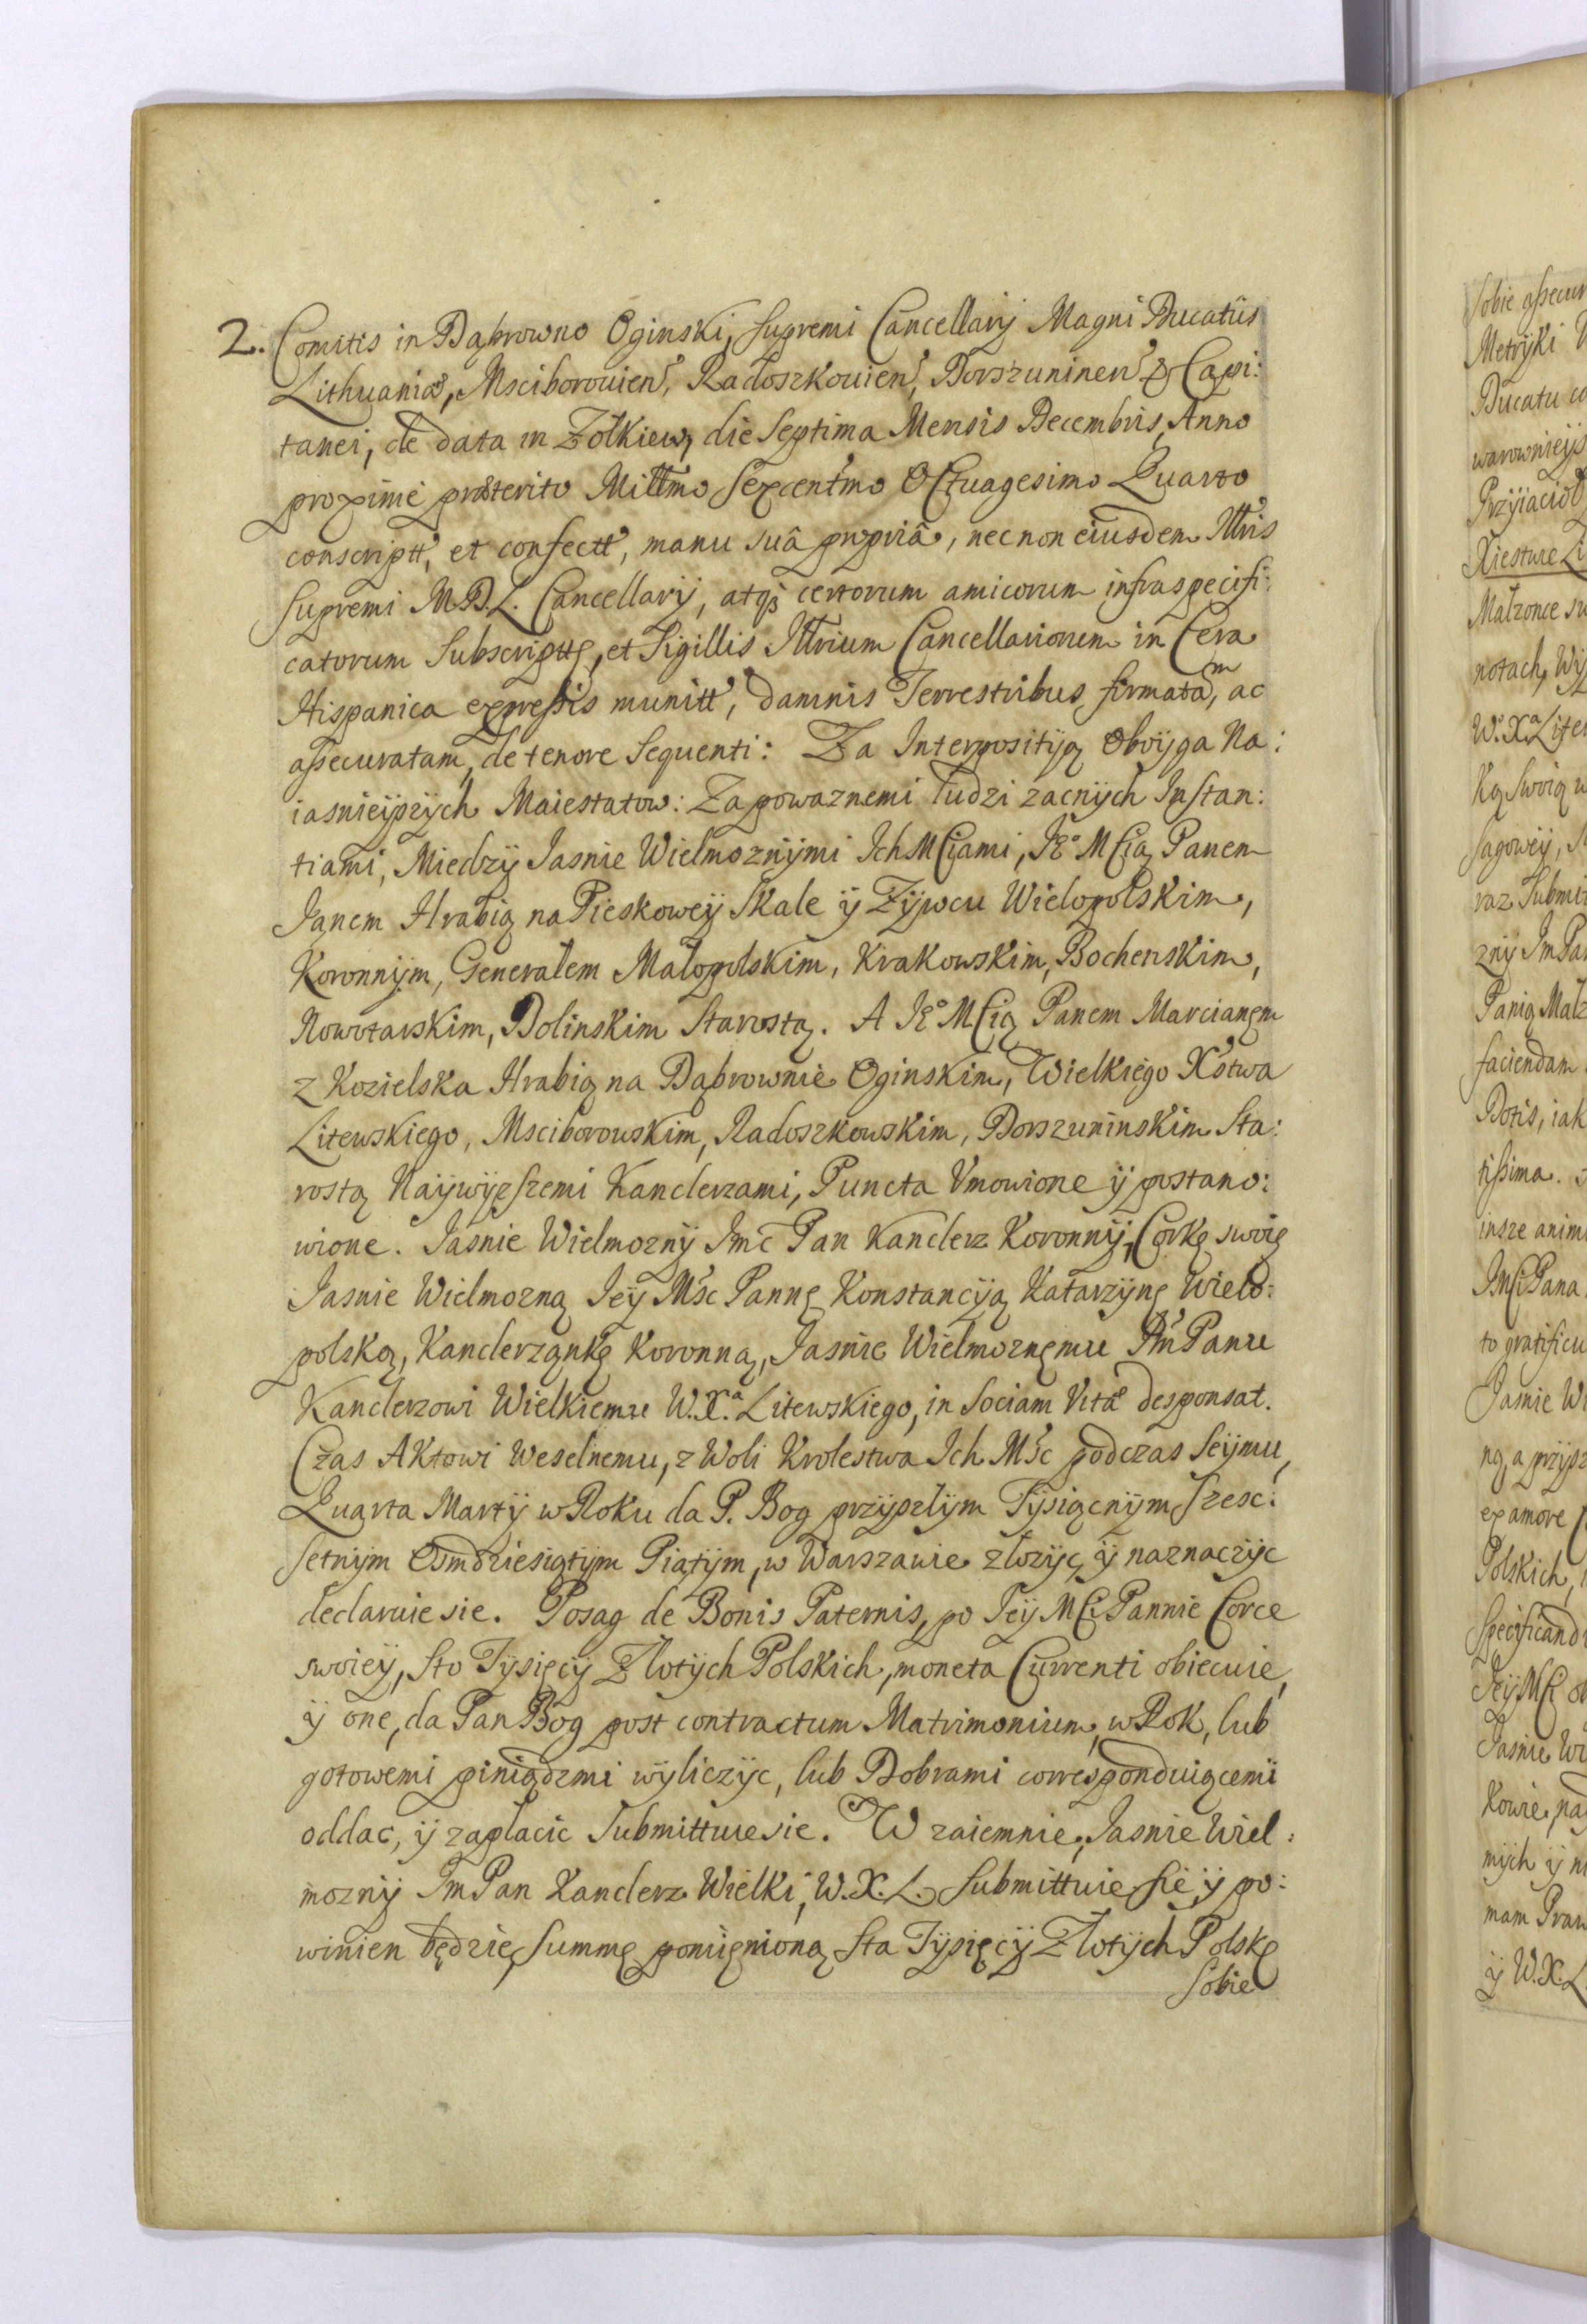 2. Comitis in Dąbrowno Oginski, Supremi Cancellarij Magni Ducatûs
Lithuaniæ, Msciborouien', Radoszkouien', Dorszuninen' & Capi:
tanei, de data in Zołkiew, die Septima Mensis Decembris, Anno
proximè præterito Milltmo Sexcent'mo Octuagesimo Quarto
conscriptt', et confectt', manu suâ propriâ, nec non eiusdem Illtris
Supremi M.D.L. Cancellarij, atq; certorum amicorum infraspecifi:
catorum Subscriptt, et Sigillis Illtrium Cancellariorum in Cera
Hispanica expressis munitt', damnis Terrestribus firmatam, ac
assecuratam, de tenore Sequenti: Za Interpositÿą Oboÿga Na:
iasnieÿszÿch Maiestatow: Za powaznemi ludzi zacnÿch Instan:
tiami, Miedzÿ Iasnie Wielmoznÿmi Ich MCiami, Ie° MCią Panem
Ianem Hrabią na Pieskoweÿ Skale ÿ Zÿwcu Wielopolskim,
Koronnÿm, Generałem Małopolskim, Krakowskim, Bochenskim,
Nowotarskim, Dolinskim Starostą. A Ie° MCią Panem Marcianem
z Kozielska Hrabią na Dąbrownie Oginskim, Wielkiego X'stwa
Litewskiego, Msciborowskim, Radoszkowskim, Dorszuninskim Sta:
rostą Naÿwÿeszemi Kanclerzami, Puncta Vmowione ÿ postano:
wione. Iasnie Wielmoznÿ Imc Pan Kanclerz Koronnÿ, Corkę swoię
Iasnie Wielmozną Ieÿ M'sc Pannę Konstancÿą Katarzÿnę Wielo:
polską, Kanclerzankę Koronną, Iasnie Wielmoznemu Im' Panu
Kanclerzowi Wielkiemu W.X.a Litewskiego, in Sociam Vitæ desponsat.
Czas Aktowi Weselnemu, z Woli Krolestwa Ich M'sc podczas Seÿmu,
Quarta Martÿ w Roku da P. Bog przÿszlÿm Tÿsiącnÿm Szesc:
setnÿm Osmdziesiątÿm Piątÿm, w Warszawie złozÿc, ÿ naznaczÿc
declaruie sie. Posag de Bonis Paternis, po Ieÿ MCi Pannie Corce
swoieÿ, Sto Tÿsięcÿ Złotÿch Polskich, moneta Currenti obiecuie,
ÿ one, da Pan Bog post contractum Matrimonium, w Rok, lub
gotowemi piniądzmi wÿliczÿc, lub Dobrami correspondui̡ącemi
oddac, ÿ zapłacic Submittuie sie. W zaiemnie, Iasnie Wiel:
moznÿ Im Pan Kanclerz Wielki, W.X.L. Submittuie sie, ÿ po:
winien będzie, Summę pomięnioną Sta Tÿsięcÿ Złotÿch Polskę
Sobie